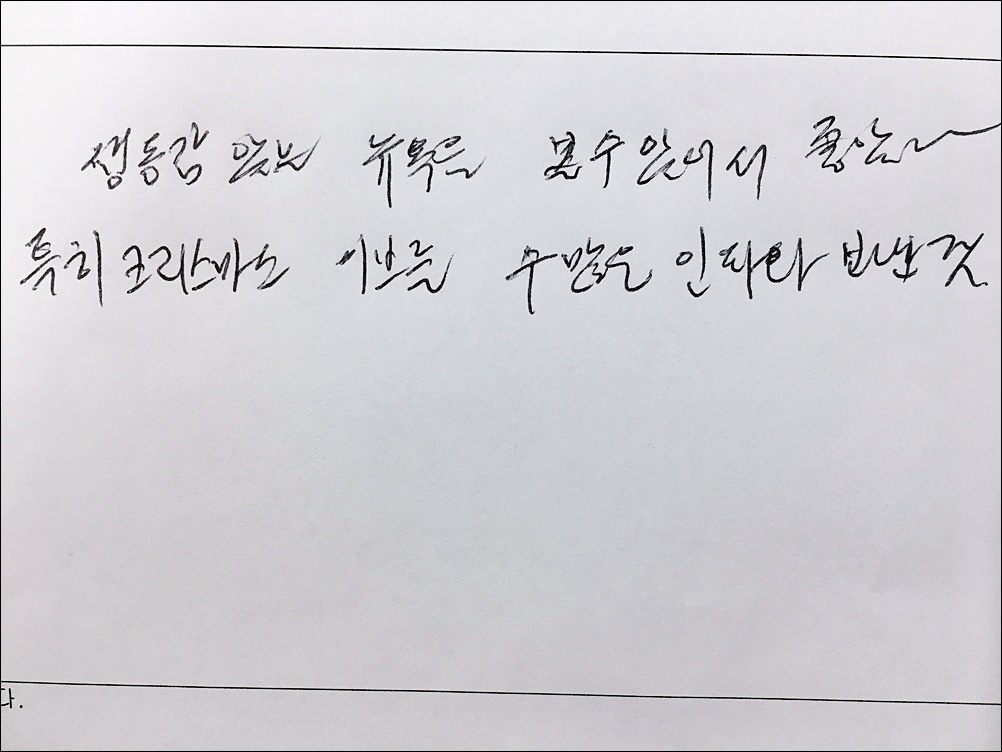 생동감 있는 뉴욕을 볼수있어서 좋았음~
특히 크리스마스 이브를 수많은 인파와 보낸 것.
다.